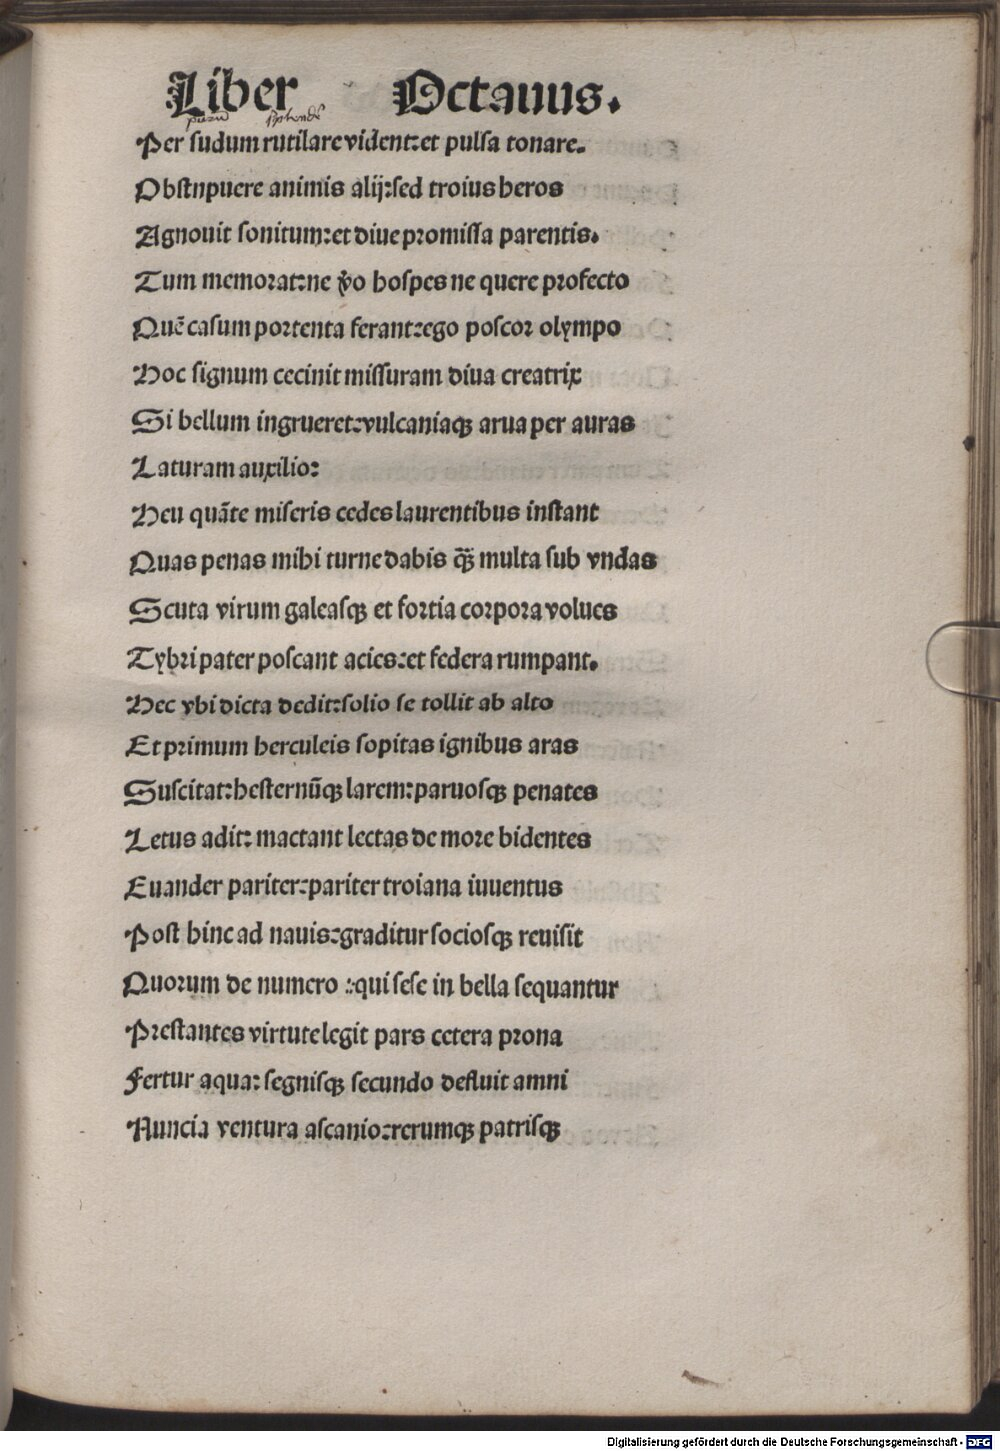 Liber Octauus.
Per sudum rutilare vident:et pulsa tonare.
Obstupuere animis alij:sed troius heros
Agnouit sonitum:et diue promissa parentis.
Tum memorat:ne v̊o hospes ne quere profecto
Quē casum portenta ferant:ego poscor olympo
Hoc signum cecinit missuram diua creatrix
Si bellum ingrueret:vulcaniaqꝫ arua per auras
Laturam auxilio:
Heu quāte miseris cedes laurentibus instant
Quas penas mihi turne dabis qᷓꝫ multa sub vndas
Scuta virum galeasqꝫ et fortia corpora volues
Tybri pater poscant acies:et federa rumpant.
Hec vbi dicta dedit:solio se tollit ab alto
Et primum herculeis sopitas ignibus aras
Suscitat:hesternūqꝫ larem:paruosqꝫ penates
Letus adit: mactant lectas de more bidentes
Euander pariter:pariter troiana iuuentus
Post hinc ad nauis:graditur sociosqꝫ reuisit
Quorum de numero :qui sese in bella sequantur
Prestantes virtute legit pars cetera prona
Fertur aqua: segnisqꝫ secundo defluit amni
Nuncia ventura ascanio:rerumqꝫ patrisqꝫ
Digitalisierung gefördert durch die Deutsche Forschungsgemeinschaft - DFG